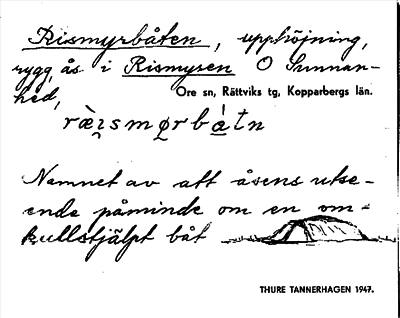 Rismyrbåten, upphöjning,
rygg, ås i Rismyren O Sunnan-
hed,
Ore sn, Rättviks tg, Kopparbergs län.
Namnet av att åsens utse-
ende påminde om en om-
kullstjälpt båt
THURE TANNERHAGEN 1947.